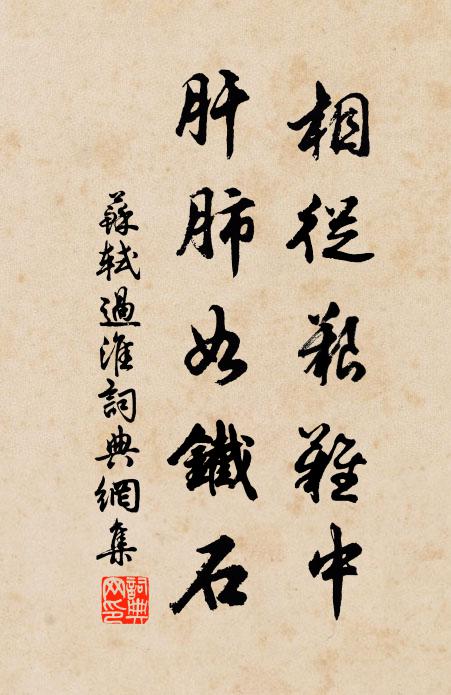 相從艱難中
肝肺如鐵石
蘇軾過淮詞典網集
詞典網印